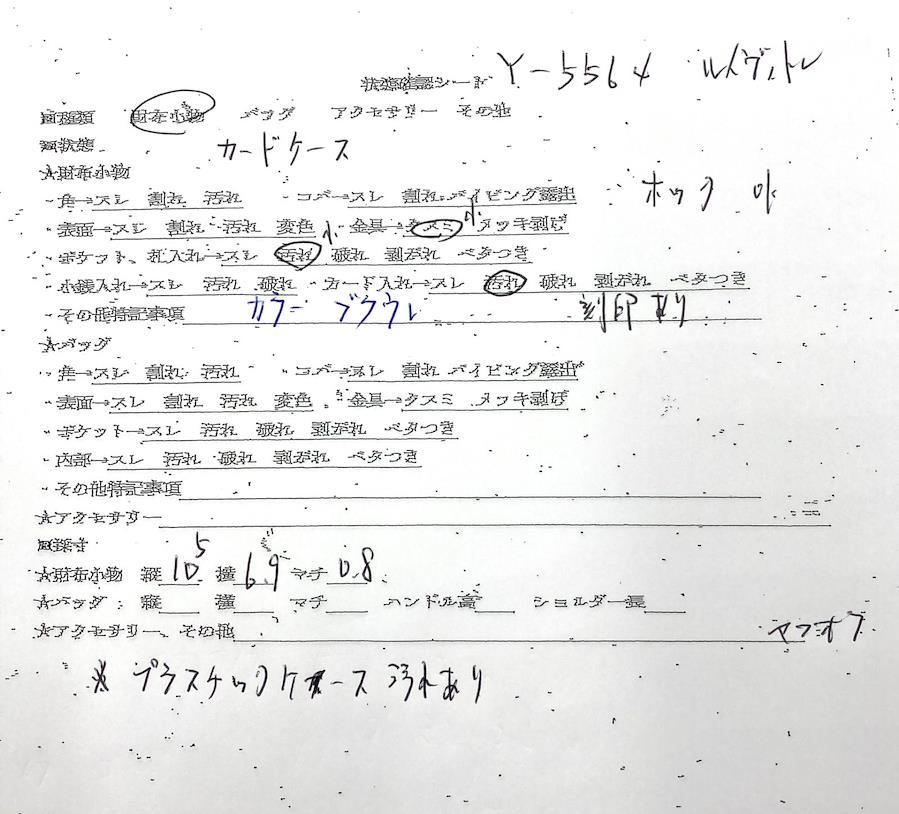 状態確認シート Y-5564 ルイヴィトン
■種類 財布小物 バッグ アクセサリー その他
■状態 カードケース
★財布小物
・角→スレ 割れ 汚れ ・コバ→スレ 割れ パイピング露出 ホック 小
・表面→スレ 割れ 汚れ 変色 ・金具→クスミ 小 メッキ剥げ
・ポケット、札入れ→スレ 汚れ 小 破れ 剥がれ ベタつき
・小銭入れ→スレ 汚れ 破れ ・カード入れ→スレ 汚れ 破れ 剥がれ ベタつき
・その他特記事項 カラー ブラウン 刻印あり
★バッグ
・角→スレ 割れ 汚れ ・コバ→スレ 割れ パイピング露出
・表面→スレ 割れ 汚れ 変色 ・金具→クスミ メッキ剥げ
・ポケット→スレ 汚れ 破れ 剥がれ ベタつき
・内部→スレ 汚れ 破れ 剥がれ ベタつき
・その他特記事項
★アクセサリー
■採寸
★財布小物 縦 10.5 横 6.9 マチ 0.8
★バッグ:縦 横 マチ ハンドル高 ショルダー長
★アクセサリー、その他 ヤフオフ
※ プラスチックケース 汚れあり